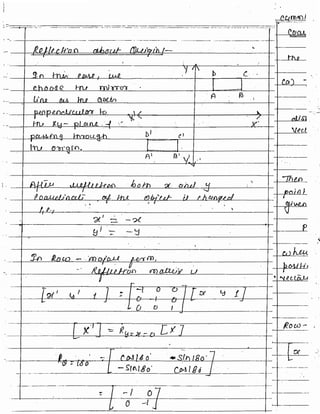 Reflection about Origin/—
In this case, we
choose the mirror
line as the axis
perpendicular to
the xy- plane &
passing through
the origin.
Y
X'
X
Y'
D C
A B
D' C'
A' B'
After reflection both x and y
coordinate of the object is changed
i,e,
x' = -x
y' = -y
In Row - major form,
Reflection matrix is
[x' y' 1] = [-1 0 0
0 -1 0
0 0 1] [x y 1]
[X'] = Ry=x=0 [X]
Rθ=180 = [cos180° -sin180°
-sin180 cos18
= [-1 0
0 -1]
symbol
the
Ca)
Vect
Then
point
given
P
when
Row -